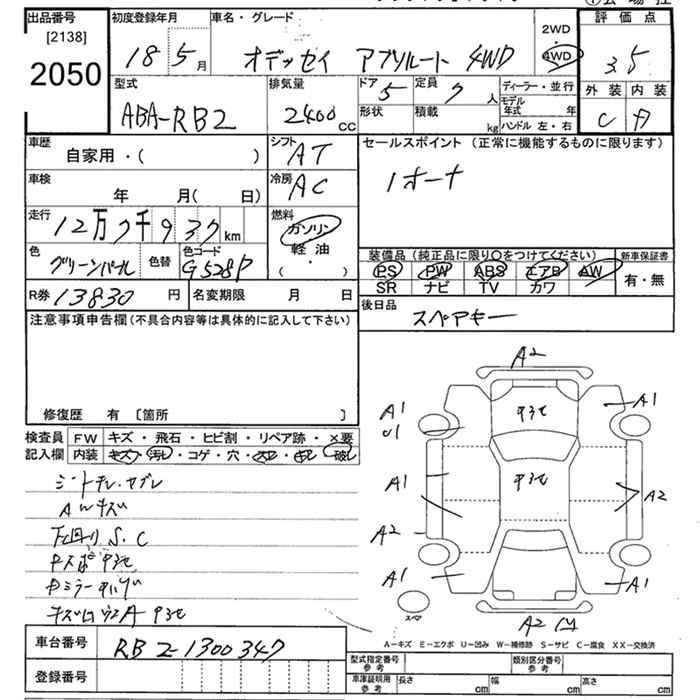 出品番号 初度登録年月 車名・グレード 2WD 評価点
[2138] 18 5月 オデッセイ アブソルート 4WD 4WD 3.5
2050 型式 排気量 ドア 定員 ディーラー・並行 外装 内装
ABA-RB2 2400cc 5 7人 モデル年式 年 C
形状 積載 kg ハンドル 左・右
車歴 シフト セールスポイント(正常に機能するものに限ります)
自家用・( ) AT 1オーナ
車検 冷房
年 月( 日) AC
走行 燃料
12万7千937km ガソリン
色 色替 色コード 軽油 装備品(純正品に限り○をつけてください) 新車保証書
グリーンパール G528P ・ PS PW ABS エアB AW 有・無
( ) SR ナビ TV カワ
R券 13830円 名変期限 月 日 後日品
スペアキー
注意事項申告欄(不具合内容等は具体的に記入して下さい)
修復歴 有 〔箇所 〕
検査員 FW キズ・飛石・ヒビ割・リペア跡・×要
記入欄 内装 キズ 汚れ・コゲ・穴・
AWキズ
下回り S.C
A2
A1 A1
U1
A1 A2
A2
A1 A1
スペア
A2
A-キズ E-エクボ U-凹み W-補修跡 S-サビ C-腐食 XX-交換済
車台番号 RB2-1300347
登録番号
型式指定番号 参考 類別区分番号 参考
車庫証明用 参考 長さ cm 幅 cm 高さ cm